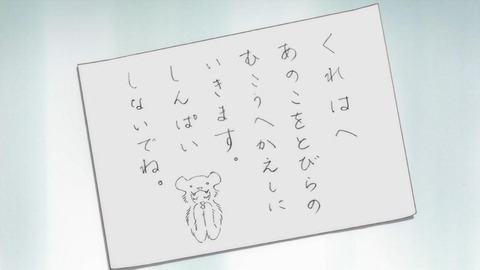 くれはへ
あのこをとびらの
むこうへかえしに
いきます。
しんぱい
しないでね。